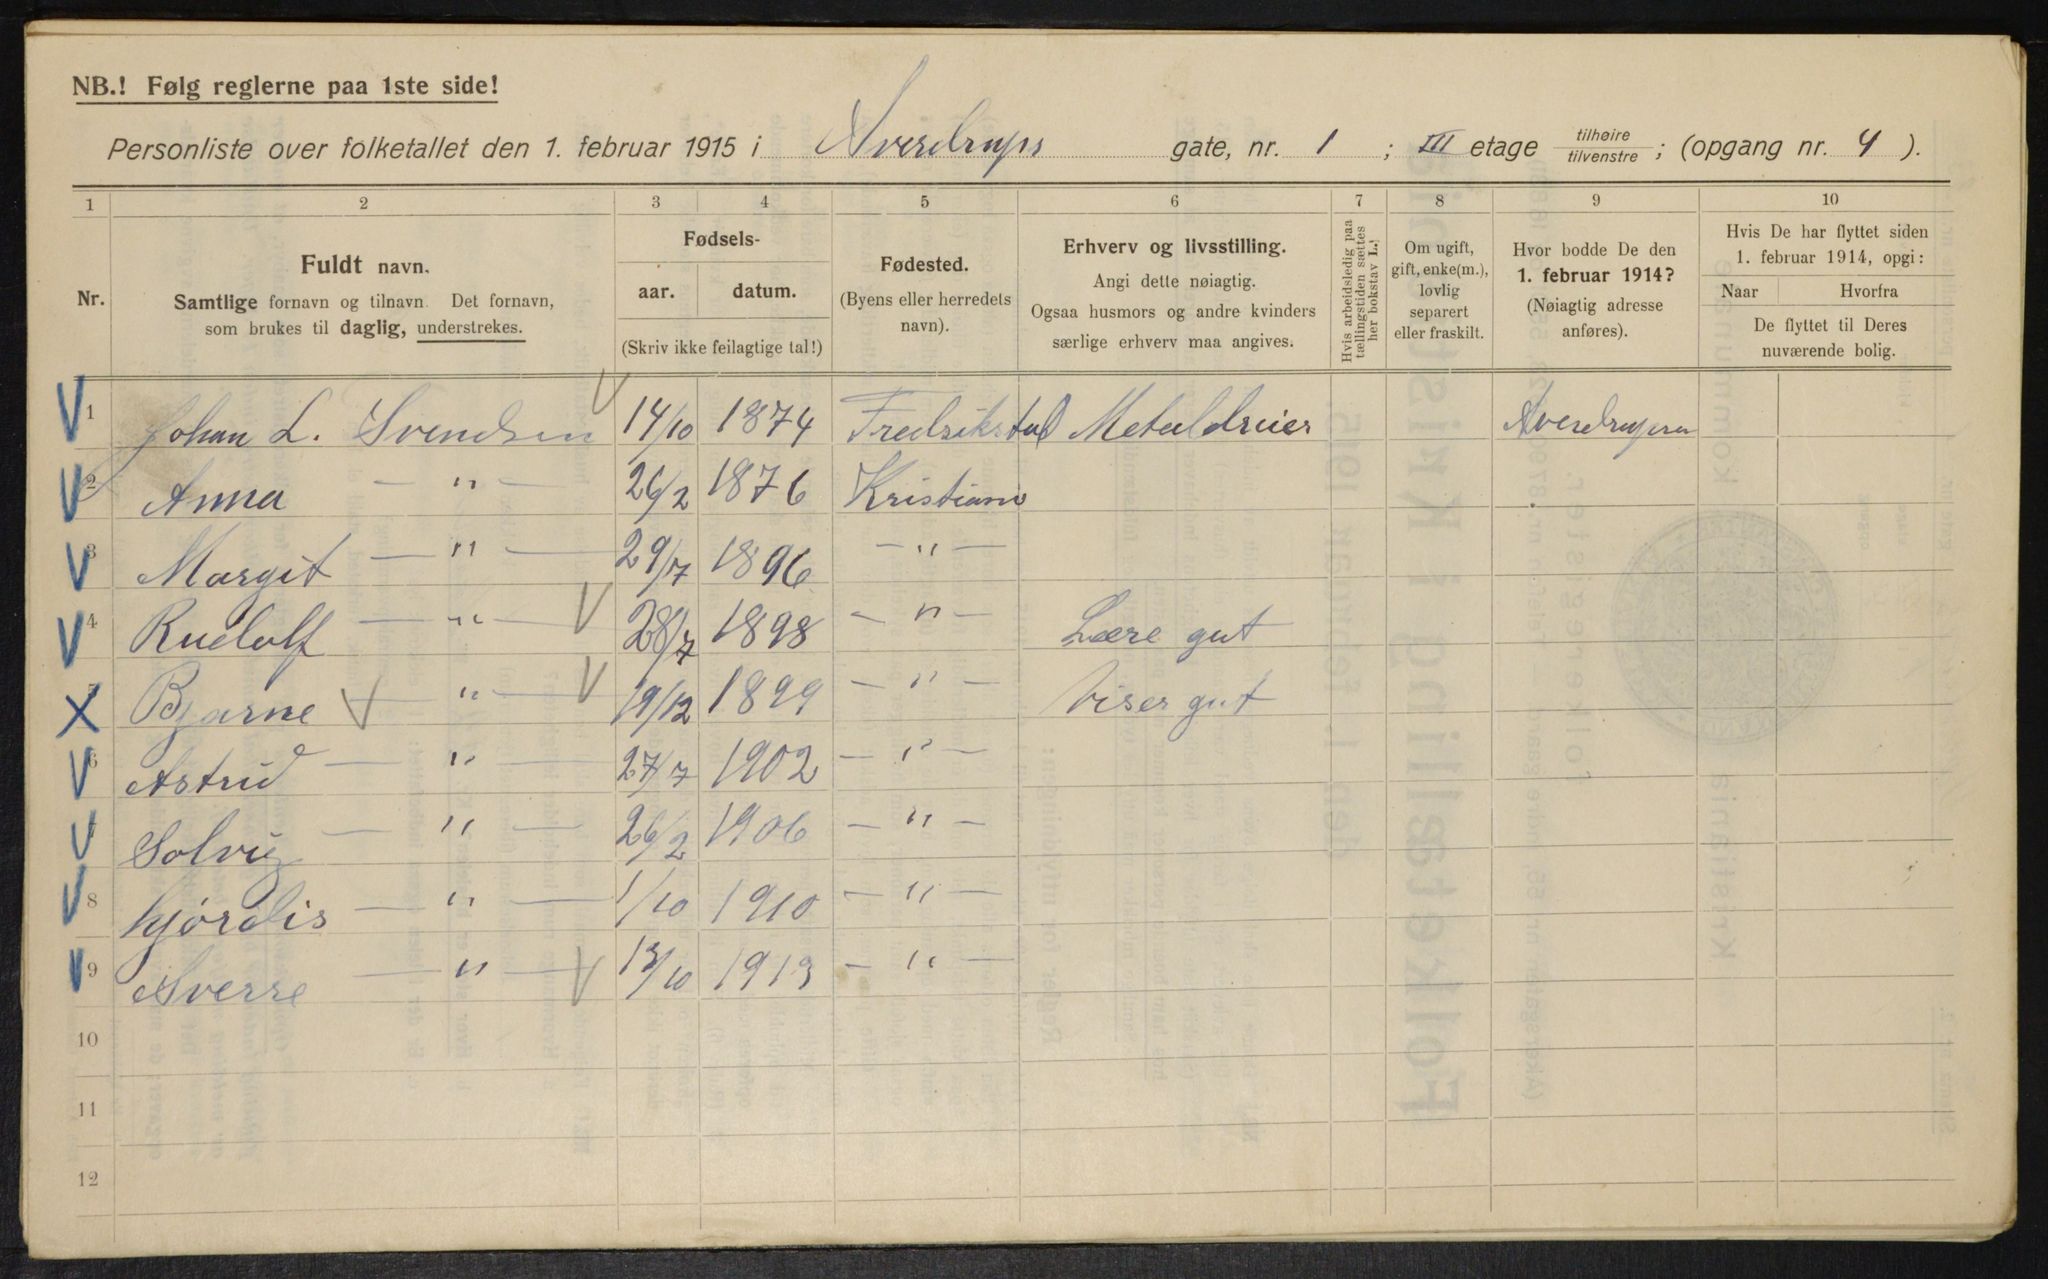 NB.! Følg reglerne paa 1ste side!
Personliste over folketallet den 1. februar 1915 i Sverdrups gate, nr. 1 ; III etage tilhøire tilvenstre ; (opgang nr. 4 ).
1 2 3 4 5 6 7 8 9 10
Nr.
Fuldt navn.
Samtlige fornavn og tilnavn. Det fornavn,
som brukes til daglig, understrekes.
Fødsels-
aar. datum.
(Skriv ikke feilagtige tal!)
Fødested.
(Byens eller herredets
navn).
Erhverv og livsstilling.
Angi dette nøiagtig.
Ogsaa husmors og andre kvinders
særlige erhverv maa angives.
Hvis arbeidsledig paa
tællingstiden sættes
her bokstav L.!
Om ugift,
gift, enke(m.),
lovlig
separert
eller fraskilt.
Hvor bodde De den
1. februar 1914?
(Nøiagtig adresse
anføres).
Hvis De har flyttet siden
1. februar 1914, opgi:
Naar Hvorfra
De flyttet til Deres
nuværende bolig.
1 Johan L. Svendsen 14/10 1874 Fredrikstad Metaldreier
2 Anna — " — 26/2 1876 Kristiania
3 Margit — " — 29/7 1896 — " —
4 Rudolf — " — 28/7 1898 — " — Lære gut
5 Bjarne — " — 19/12 1899 — " — Viser gut
6 Astrid — " — 27/7 1902 — " —
7 Solvig — " — 26/2 1906 — " —
8 Hjørdis — " — 1/10 1910 — " —
9 Sverre — " — 13/10 1913 — " —
10
11
12